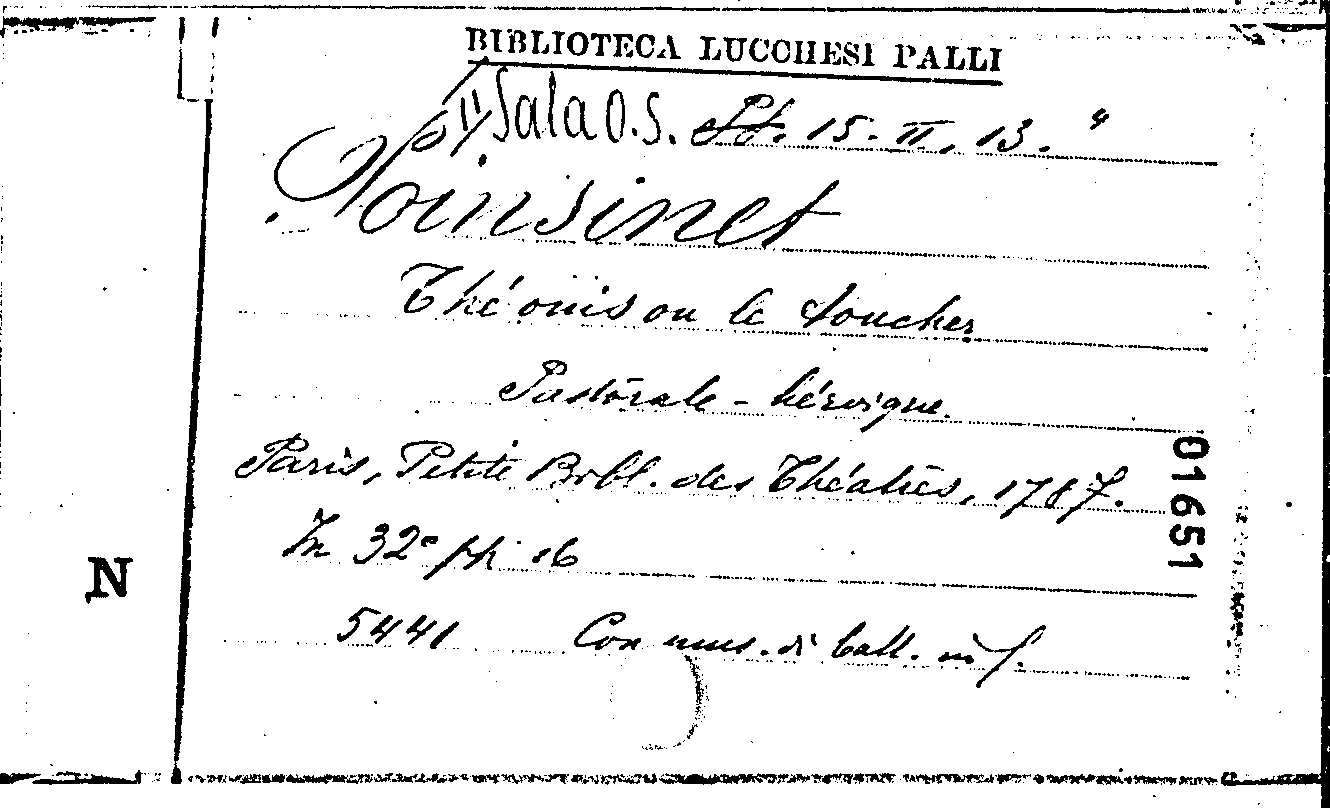 BIBLIOTECA LUCCHESI PALLI
Sala O.S. St. 15. II. 13.
Poinsinet
Théonis ou le toucher
Pastorale - héroique
Paris, Petite Bibl. des Théâtres, 1787.
In 32° pp. 16
5441 Con mus. di ball. in f.
01651
N